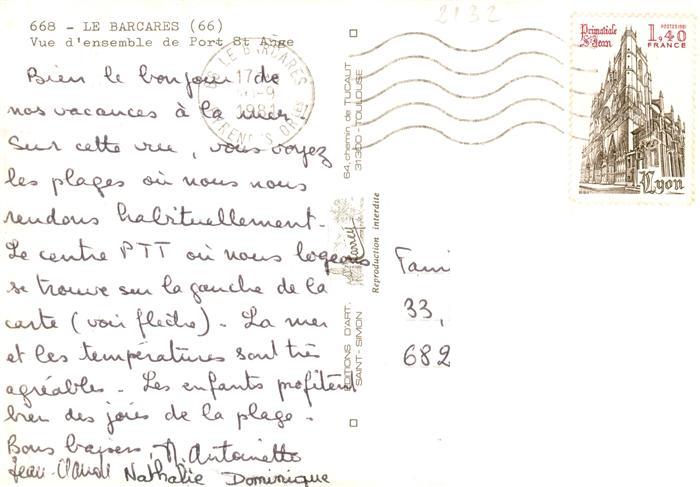 668 - LE BARCARES (66)
Vue d'ensemble de Port St Ange
2132
Bien le bonjour de
nos vacances à la mer
Sur cette vue, vous voyez
les plages où nous nous
rendons habituellement.
Le centre PTT où nous logeons
se trouve sur la gauche de la
carte (voir flèche). La mer
et les températures sont très
agréables. Les enfants profitent
bien des joies de la plage.
Bons baisers, M. Antoinette
Jean-Claude Nathalie Dominique
LE BARCARES
17
1981
64, chemin de TUCAUT
31300 - TOULOUSE
Reproduction interdite
EDITIONS D'ART.
SAINT-SIMON
Primatiale
St Jean
POSTES 1981
1,40
FRANCE
Lyon
33,
682